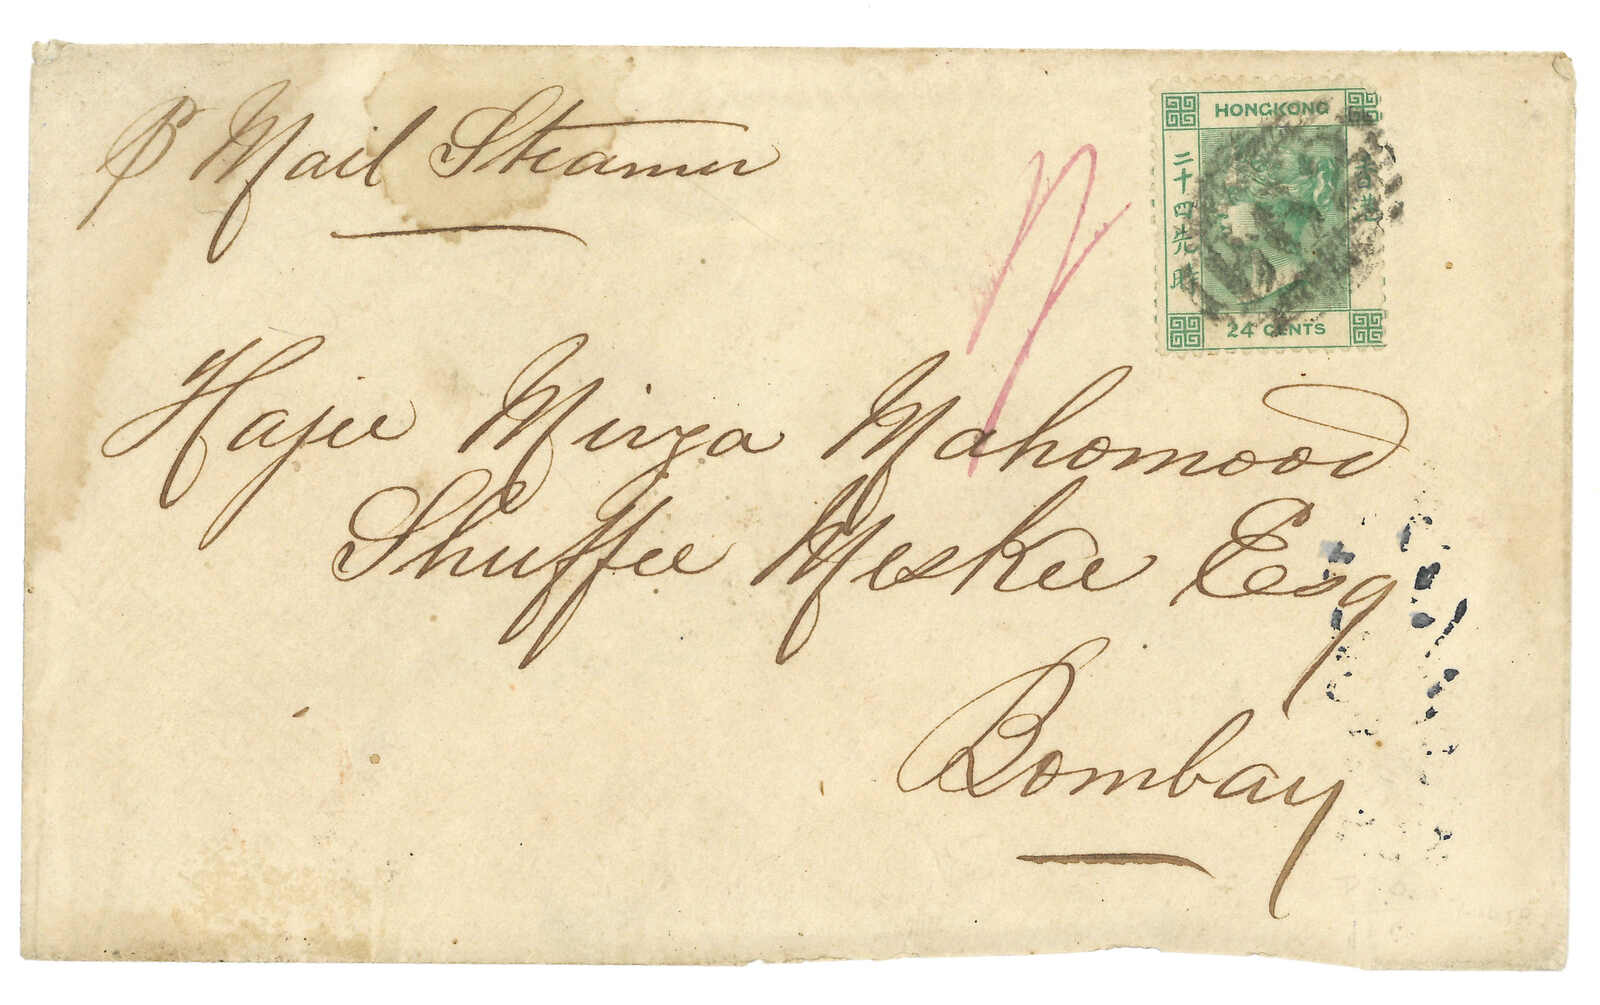 P Mail Steamer
HONGKONG
二十四先時
24 CENTS
Hajee Mirza Mahomood
Shuffee Meskee Esq
Bombay